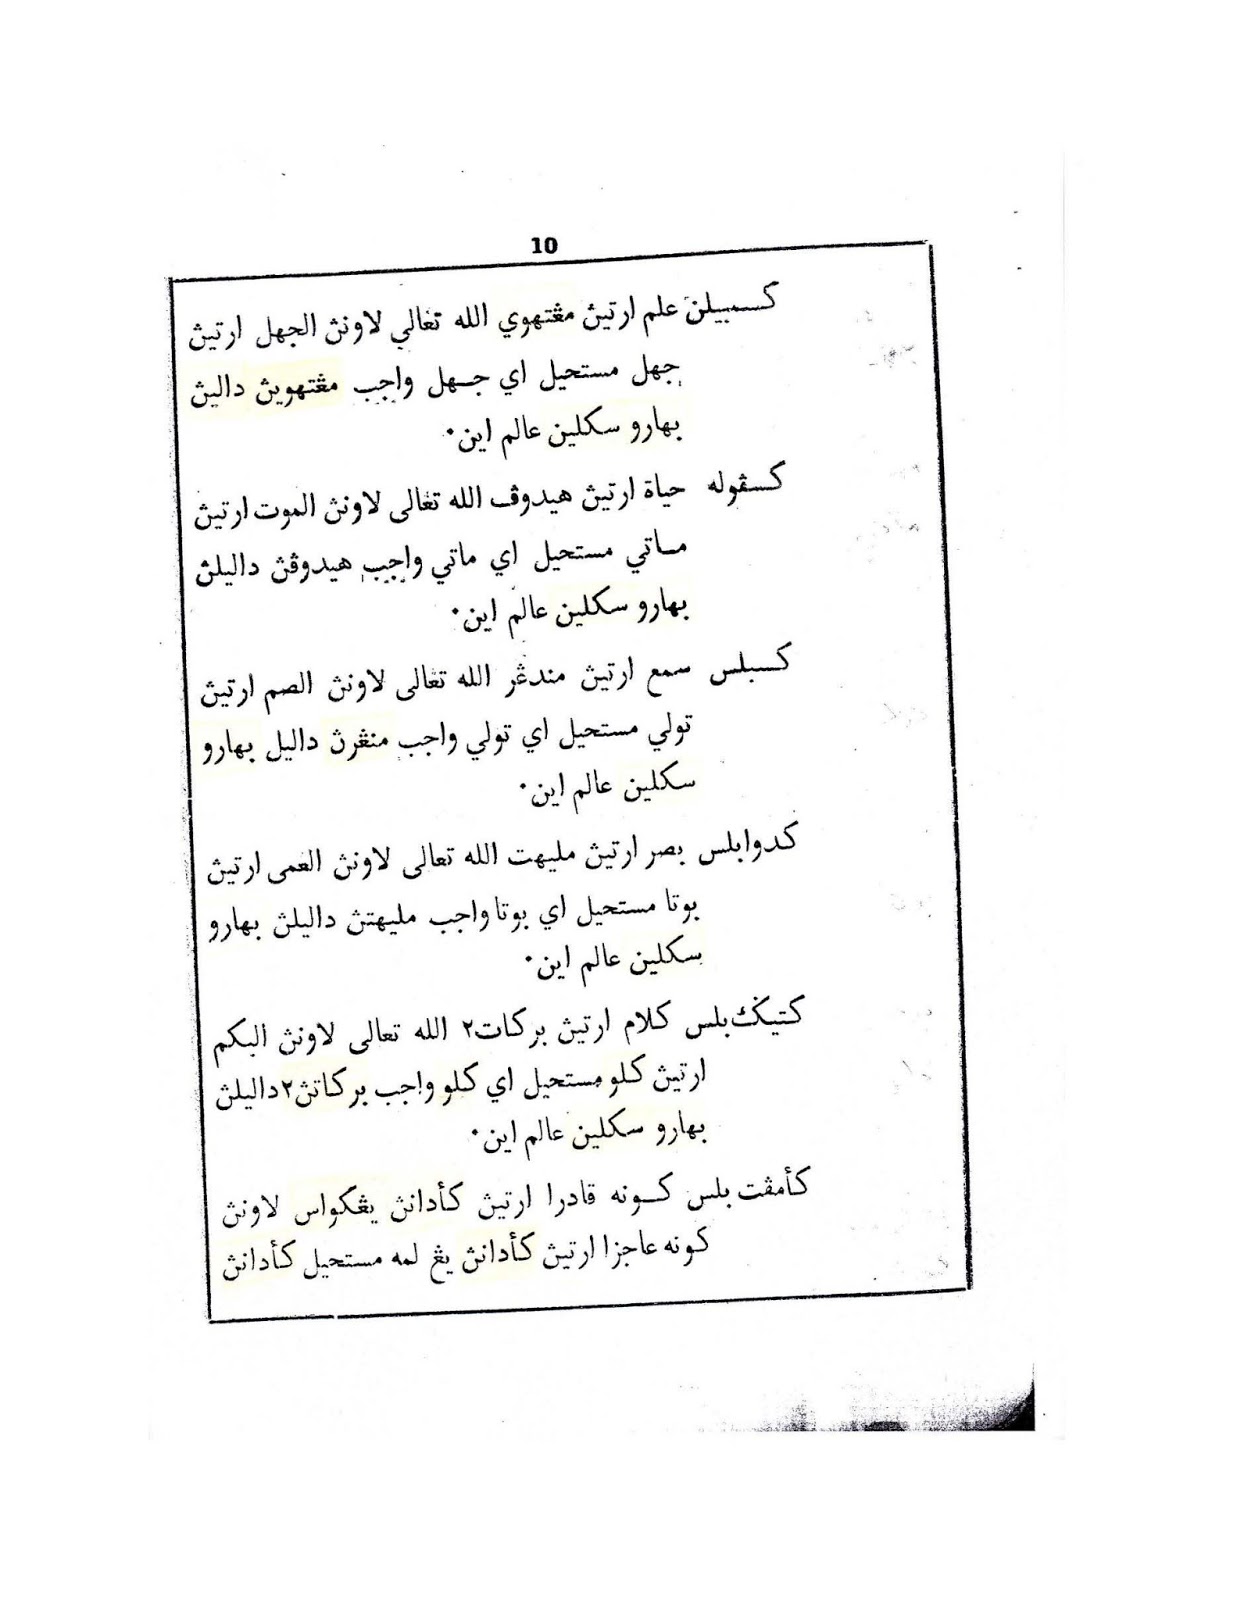 10
كسمبيلن علم ارتيڽ مڠتهوي الله تعالى لاونڽ الجهل ارتيڽ
جهل مستحيل اي جهل واجب مڠتهويڽ داليڽ
بهارو سكلين عالم اين٠
كسڤوله حياة ارتيڽ هيدوڤ الله تعالى لاونڽ الموت ارتيڽ
ماتي مستحيل اي ماتي واجب هيدوڤڽ داليلڽ
بهارو سكلين عالم اين٠
كسبلس سمع ارتيڽ مندڠر الله تعالى لاونڽ الصم ارتيڽ
تولي مستحيل اي تولي واجب منڠرڽ داليل بهارو
سكلين عالم اين٠
كدوابلس بصر ارتيڽ مليهت الله تعالى لاونڽ العمى ارتيڽ
بوتا مستحيل اي بوتا واجب مليهتڽ داليلڽ بهارو
سكلين عالم اين٠
كتيݢبلس كلام ارتيڽ بركات٢ الله تعالى لاونڽ البكم
ارتيڽ كلو مستحيل اي كلو واجب بركاتڽ٢ داليلڽ
بهارو سكلين عالم اين٠
كأمڤت بلس كونه قادرا ارتيڽ كأدانڽ يڠكواس لاونڽ
كونه عاجزا ارتيڽ كأدانڽ يڠ لمه مستحيل كأدانڽ